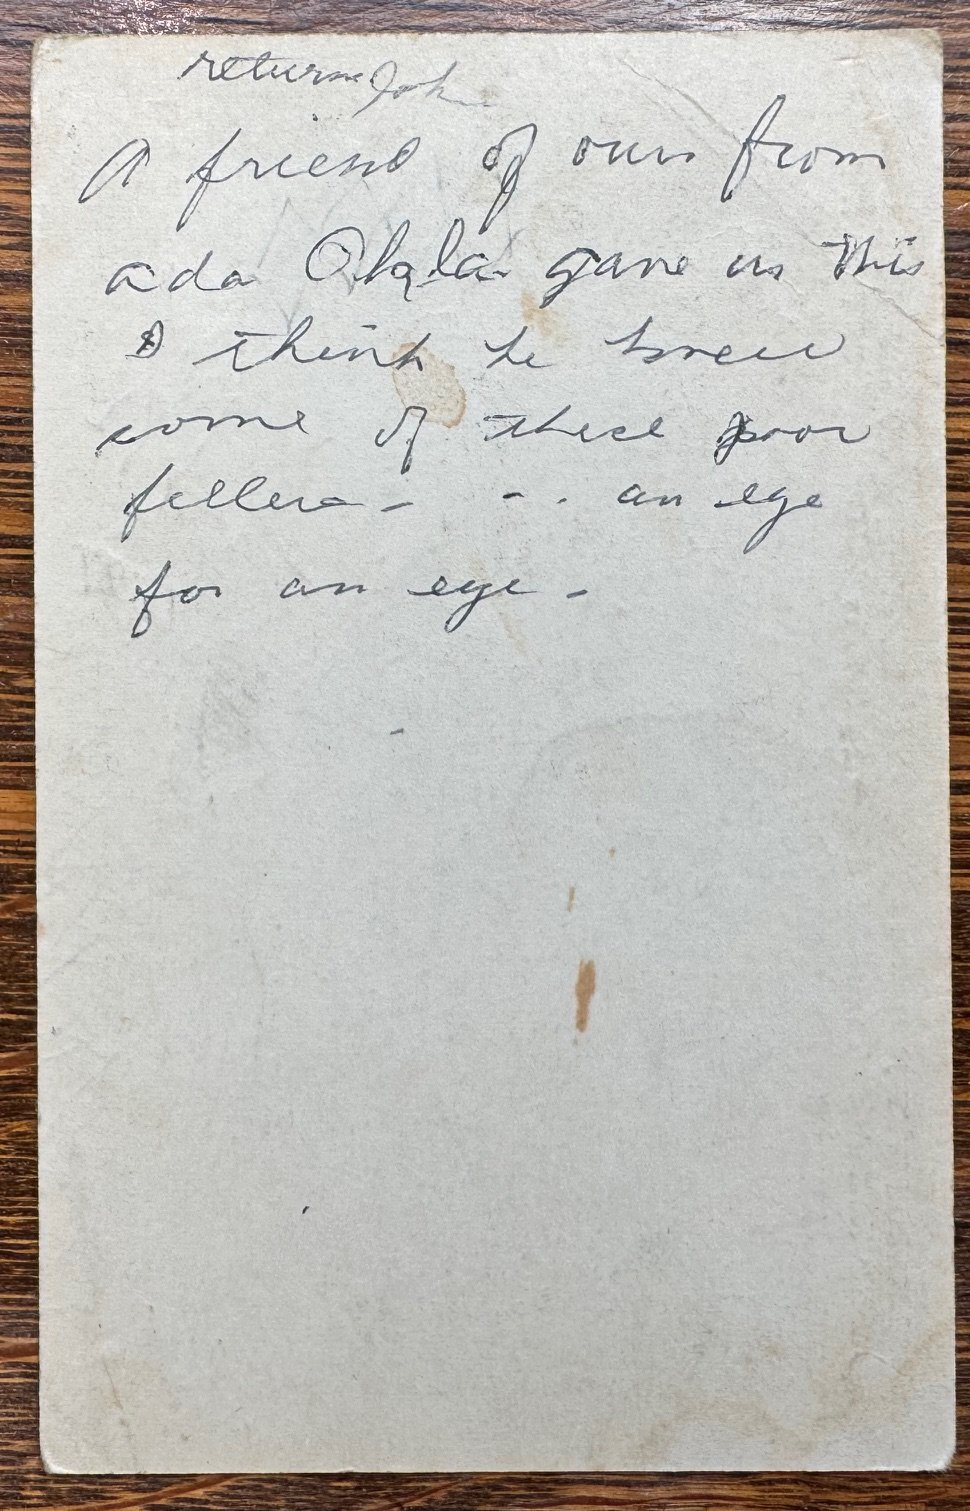 return John
A friend of ours from
ada Okla. gave us this
I think he knew
some of these poor
fellers - - . an eye
for an eye -